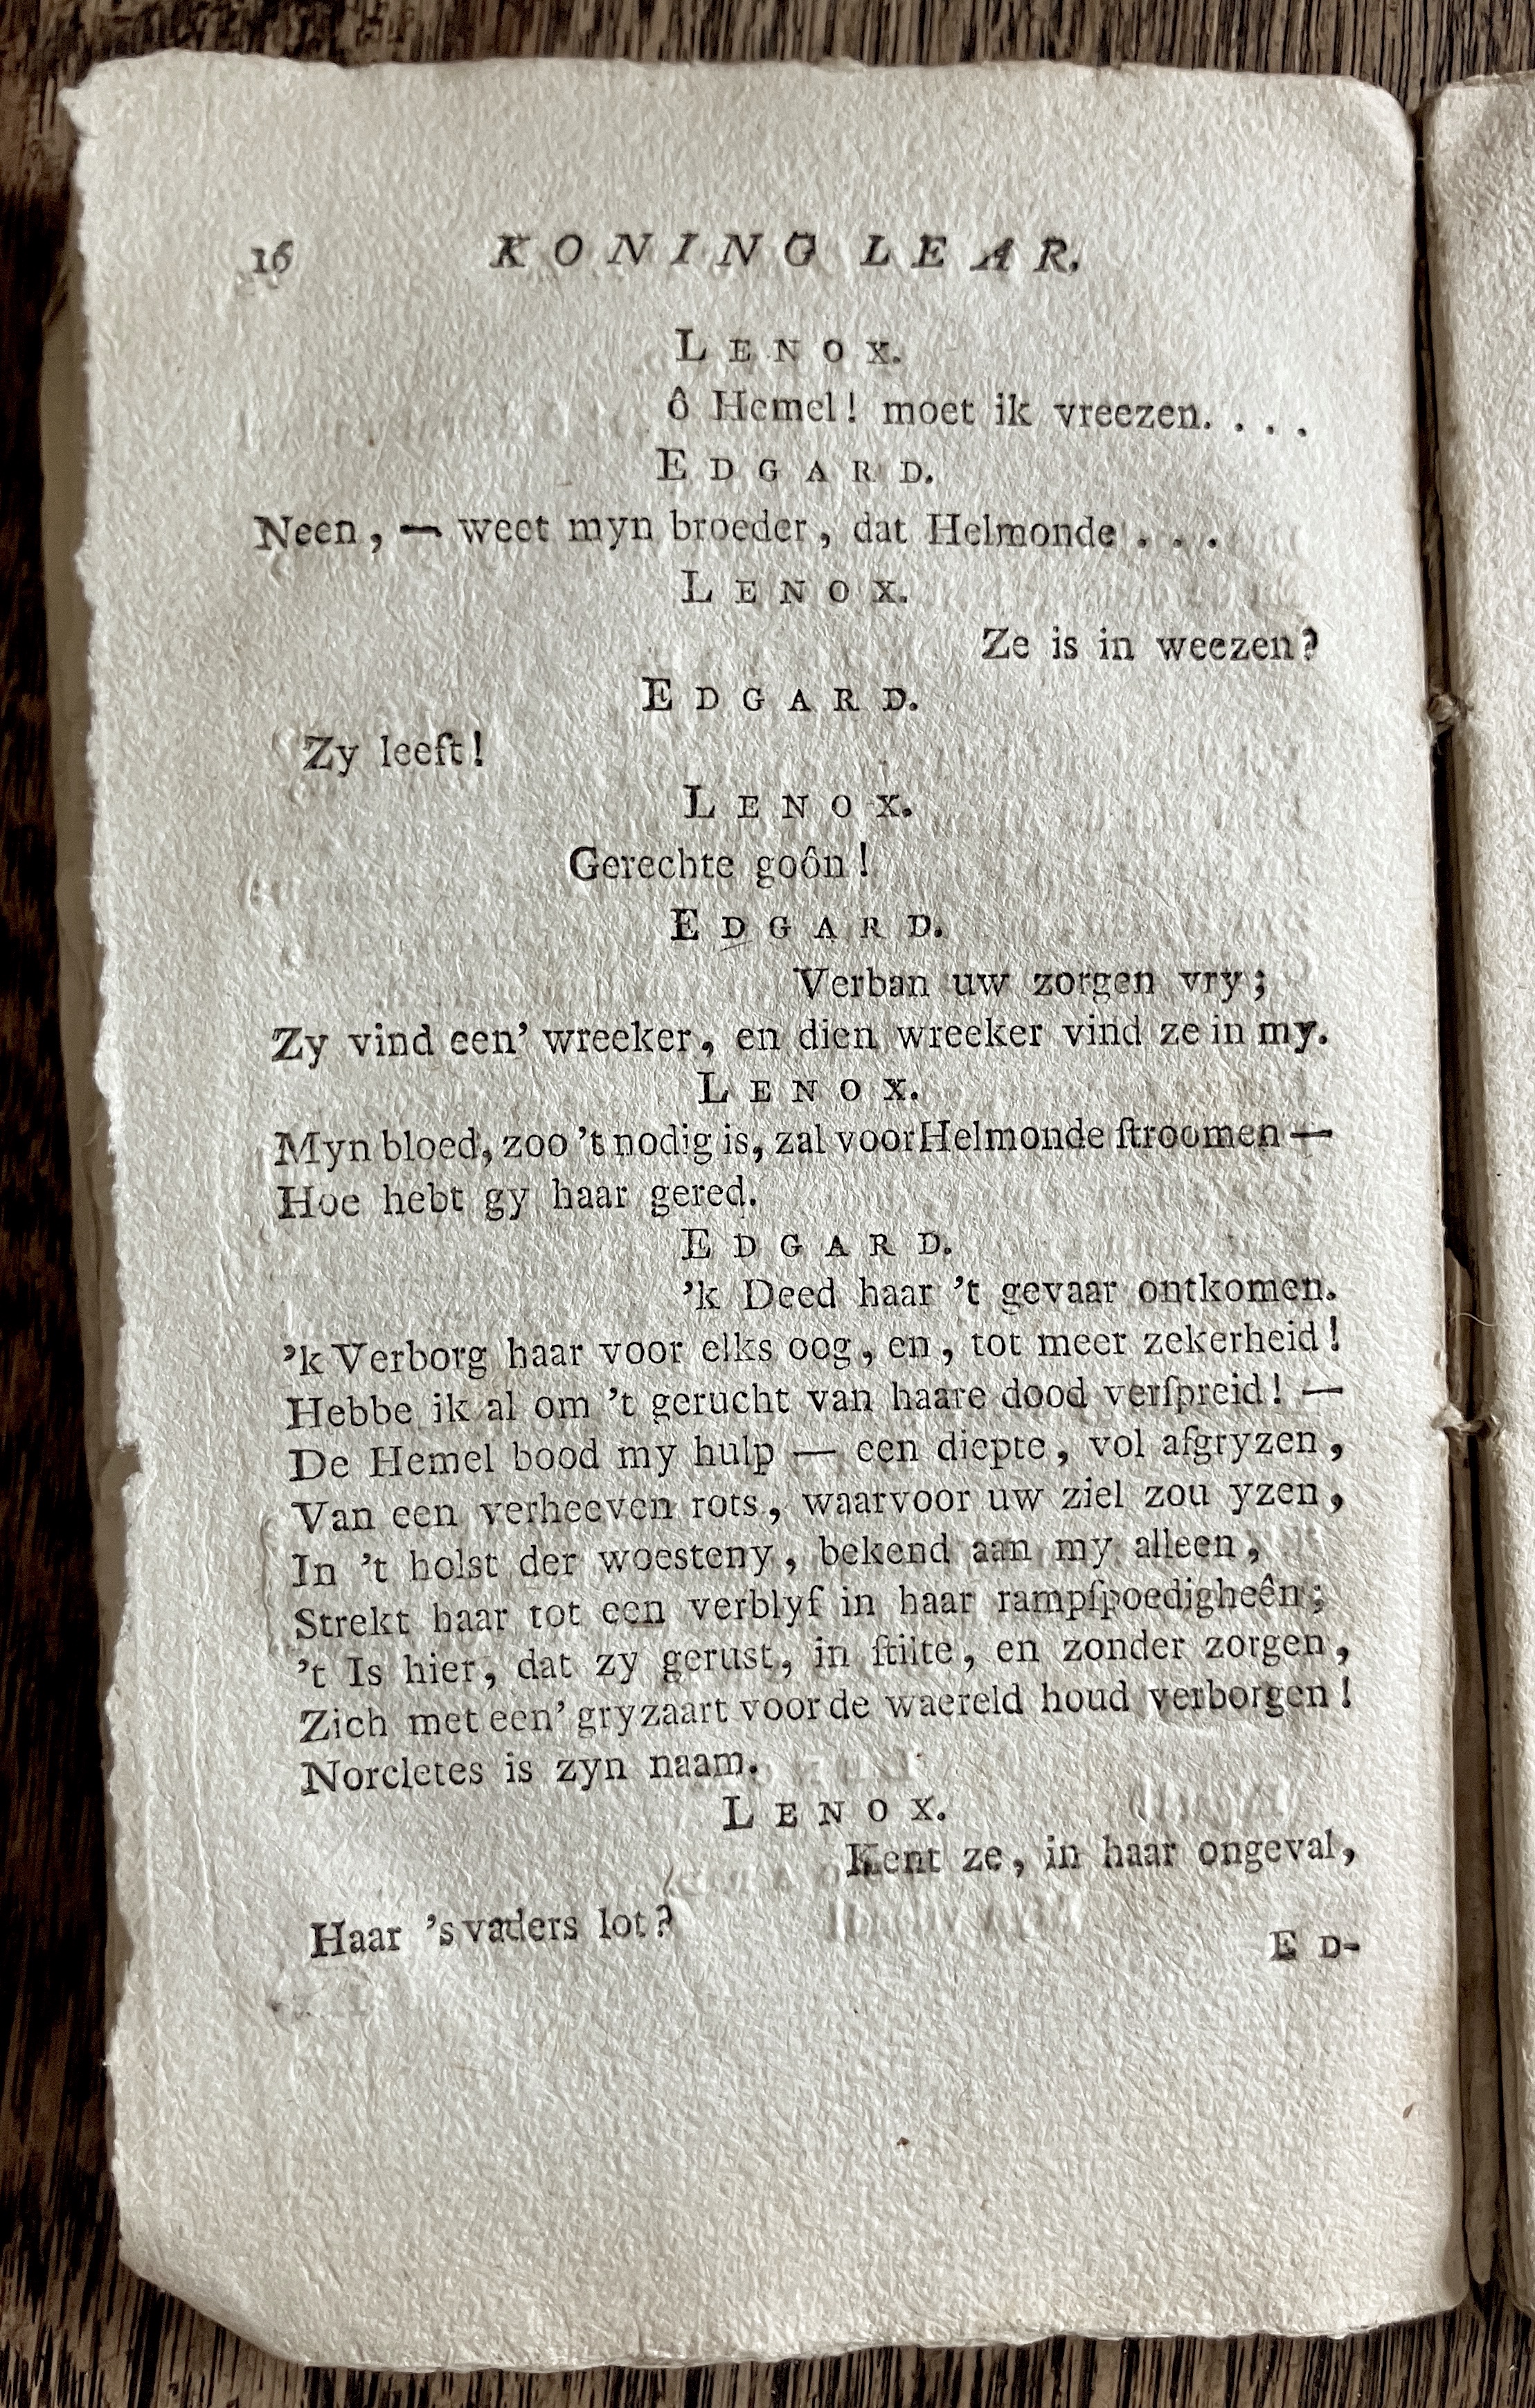 16 KONING LEAR.
LENOX.
ô Hemel! moet ik vreezen. . . .
EDGARD.
Neen, — weet myn broeder, dat Helmonde . . .
LENOX.
Ze is in weezen?
EDGARD.
Zy leeft!
LENOX.
Gerechte goôn!
EDGARD.
Verban uw zorgen vry;
Zy vind een' wreeker, en dien wreeker vind ze in my.
LENOX.
Myn bloed, zoo 't nodig is, zal voor Helmonde ſtroomen —
Hoe hebt gy haar gered.
EDGARD.
'k Deed haar 't gevaar ontkomen.
'k Verborg haar voor elks oog, en, tot meer zekerheid!
Hebbe ik al om 't gerucht van haare dood verſpreid! —
De Hemel bood my hulp — een diepte, vol afgryzen,
Van een verheeven rots, waarvoor uw ziel zou yzen,
In 't holst der woesteny, bekend aan my alleen,
Strekt haar tot een verblyf in haar rampſpoedigheên;
't Is hier, dat zy gerust, in ſtilte, en zonder zorgen,
Zich met een' gryzaart voor de waereld houd verborgen!
Norcletes is zyn naam.
LENOX.
Kent ze, in haar ongeval,
Haar 's vaders lot?
ED-